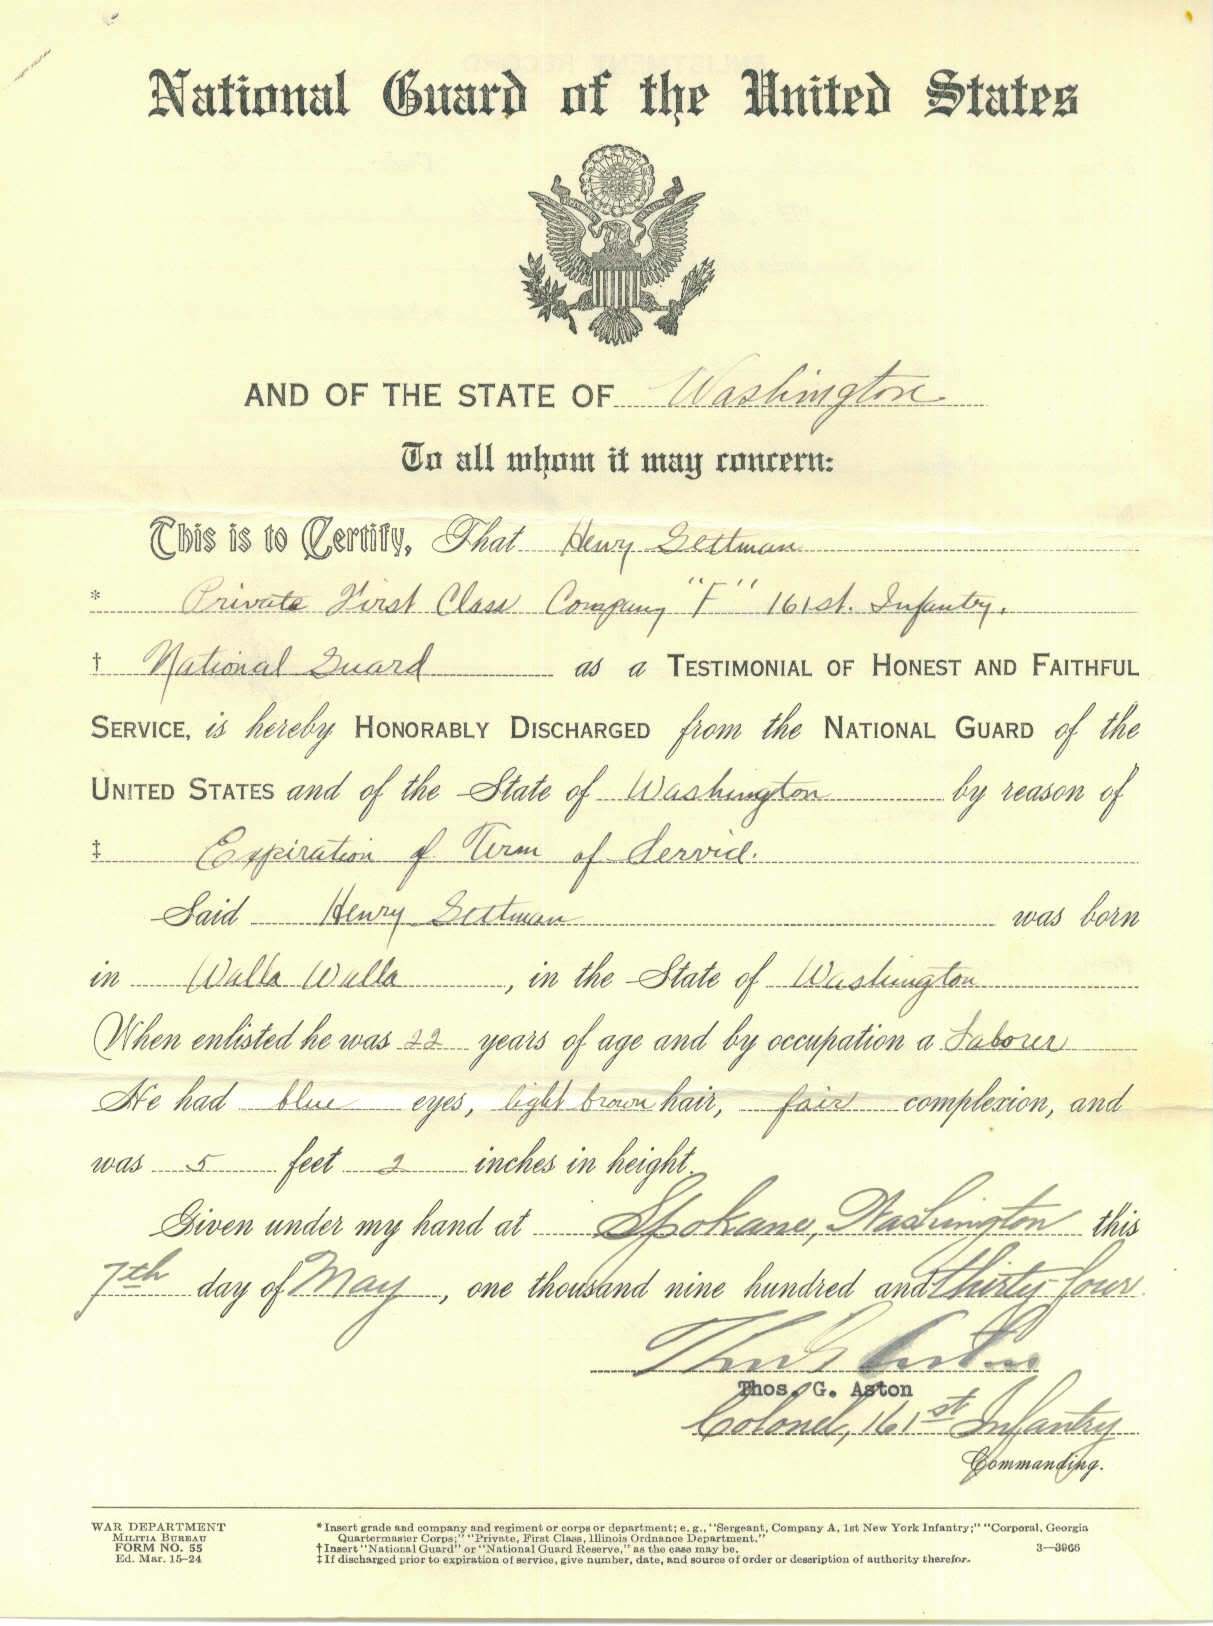 National Guard of the United States
AND OF THE STATE OF Washington
To all whom it may concern:
This is to Certify, That Henry Gettman
* Private First Class Company "F" 161st. Infantry.
† National Guard as a TESTIMONIAL OF HONEST AND FAITHFUL
SERVICE, is hereby HONORABLY DISCHARGED from the NATIONAL GUARD of the
UNITED STATES and of the State of Washington by reason of
‡ Expiration of Term of Service.
Said Henry Gettman was born
in Walla Walla, in the State of Washington
When enlisted he was 22 years of age and by occupation a Laborer
He had blue eyes, light brown hair, fair complexion, and
was 5 feet 2 inches in height.
Given under my hand at Spokane, Washington this
7th day of May, one thousand nine hundred and thirty four
Thos G Aston
Thos. G. Aston
Colonel, 161st Infantry
Commanding.
WAR DEPARTMENT
MILITIA BUREAU
FORM NO. 55
Ed. Mar. 15-24
* Insert grade and company and regiment or corps or department; e. g., "Sergeant, Company A, 1st New York Infantry;" "Corporal, Georgia
Quartermaster Corps;" "Private, First Class, Illinois Ordnance Department."
† Insert "National Guard" or "National Guard Reserve," as the case may be.
‡ If discharged prior to expiration of service, give number, date, and source of order or description of authority therefor.
3—3966